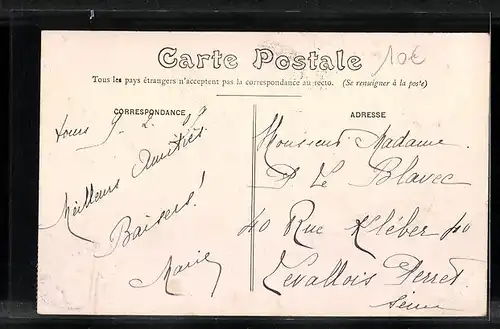 Carte Postale
10€
Tous les pays étrangers n'acceptent pas la correspondance au recto. (Se renseigner à la poste)
CORRESPONDANCE
Tours 9. 2. 09
Meilleurs Amitiés
Baisers!
Marie
ADRESSE
Monsieur Madame
Le Blavec
40 Rue Kléber 40
Levallois Perret
Seine